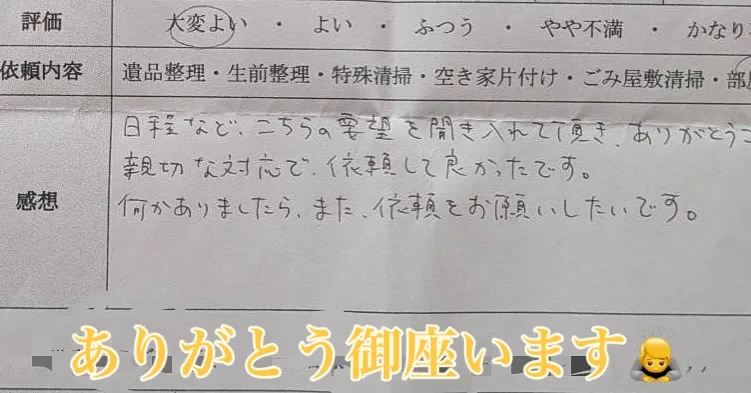 評価 大変よい ・ よい ・ ふつう ・ やや不満 ・ かなり
依頼内容 遺品整理・生前整理・特殊清掃・空き家片付け・ごみ屋敷清掃・部
感想
日程など、こちらの要望を聞き入れて頂き、ありがとうご
親切な対応で、依頼して良かったです。
何かありましたら、また、依頼をお願いしたいです。
ありがとう御座います🙇